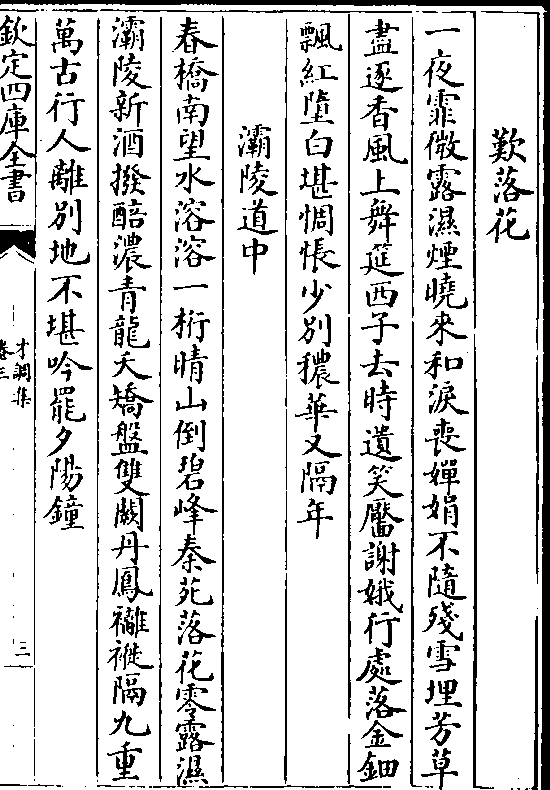 歎落花
一夜霏微露濕煙曉來和淚喪嬋娟不隨殘雪埋芳草
盡逐香風上舞筵西子去時遺笑靨謝娥行處落金鈿
飄紅墮白堪惆悵少別穠華又隔年
灞陵道中
春橋南望水溶溶一桁晴山倒碧峰秦苑落花零露濕
灞陵新酒撥醅濃青龍夭矯盤雙闕丹鳳褵褷隔九重
萬古行人離別地不堪吟罷夕陽鐘
欽定四庫全書
才調集
卷三
三